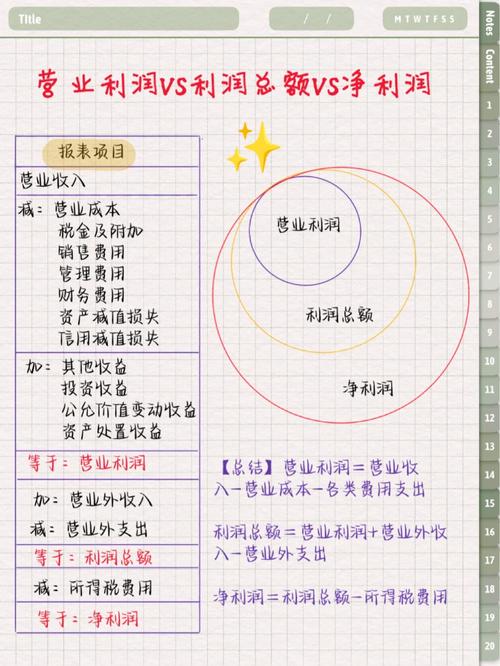 Title
/ /
M T W T F S S
Notes
Content
营业利润VS利润总额VS净利润
报表项目
营业收入
减：营业成本
税金及附加
销售费用
管理费用
财务费用
资产减值损失
信用减值损失
加：其他收益
投资收益
公允价值变动收益
资产处置收益
等于：营业利润
加：营业外收入
减：营业外支出
等于：利润总额
减：所得税费用
等于：净利润
营业利润
利润总额
净利润
【总结】营业利润＝营业收
入－营业成本－各类费用支出
利润总额＝营业利润＋营业外收
入－营业外支出
净利润＝利润总额－所得税费用
1
2
3
4
5
6
7
8
9
10
11
12
13
14
15
16
17
18
19
20